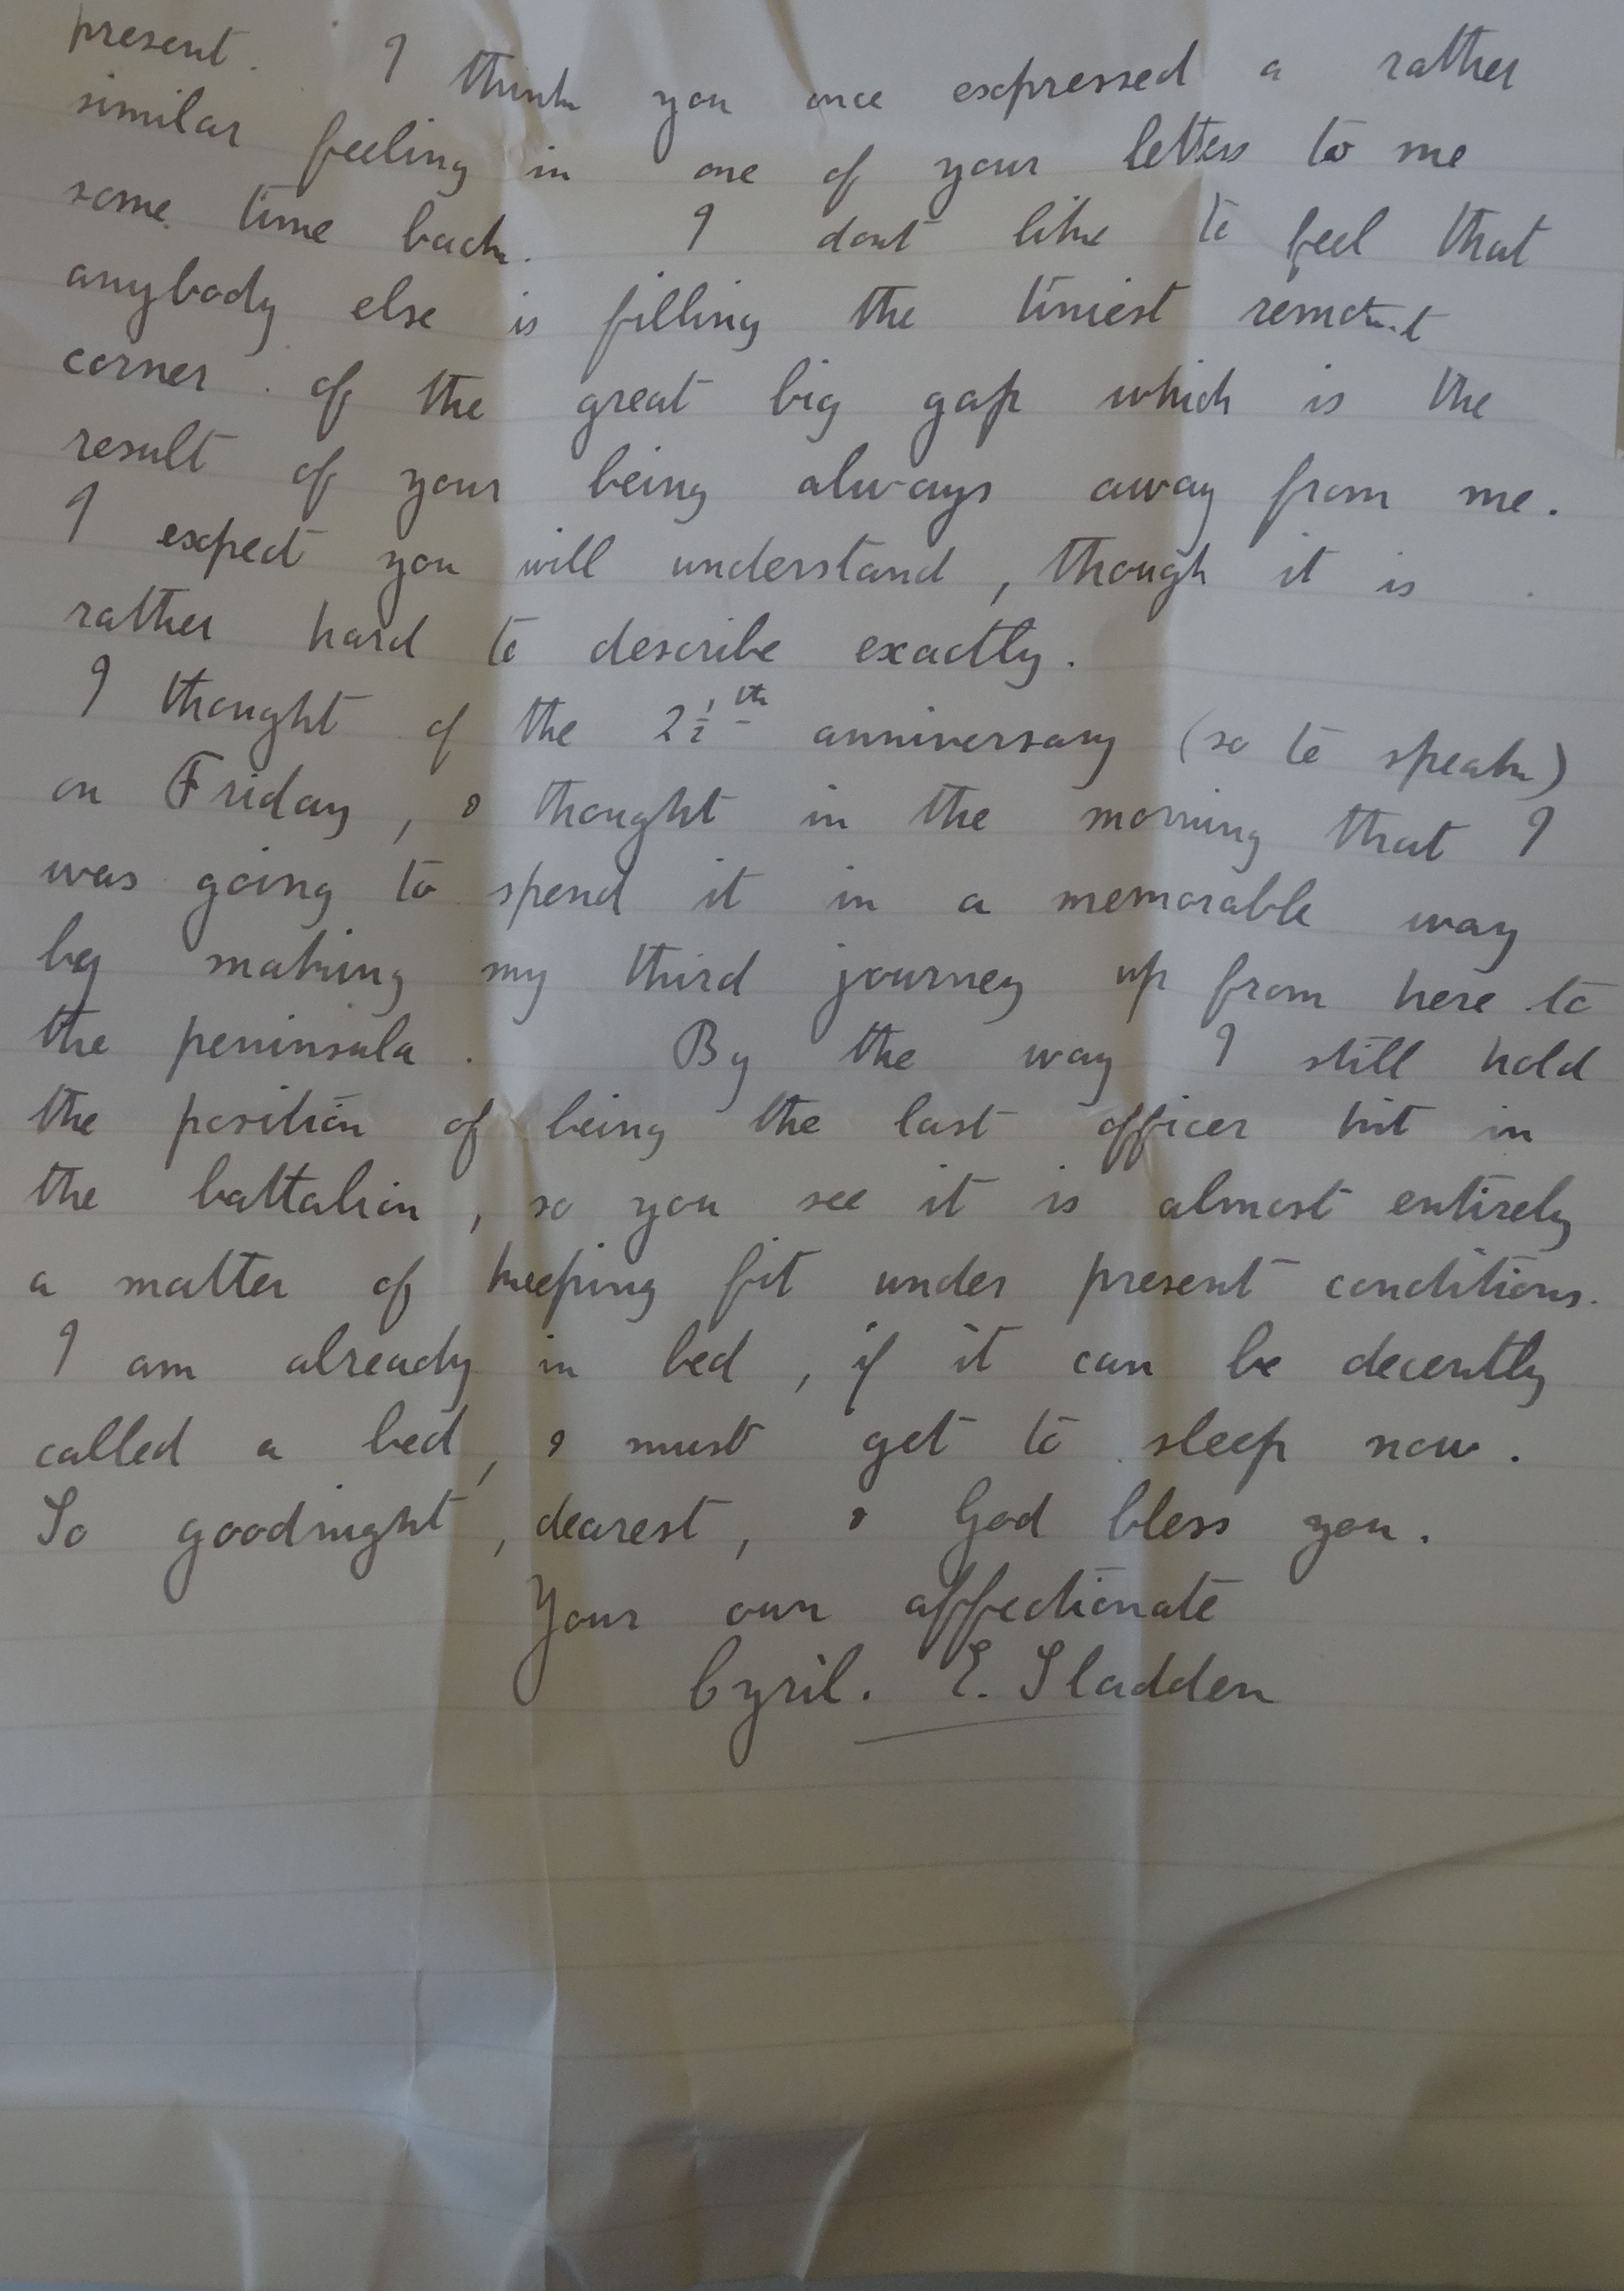 present. I think you once expressed a rather
similar feeling in one of your letters to me
some time back. I dont like to feel that
anybody else is filling the tiniest
corner of the great big gap which is the
result of your being always away from me.
I expect you will understand, though it is
rather hard to describe exactly.
I thought of the 2½th anniversary (so to speak)
on Friday, & thought in the morning that I
was going to spend it in a memorable way
by making my third journey up from here to
the peninsula. By the way I still hold
the position of being the last officer hit in
the battalion, so you see it is almost entirely
a matter of keeping fit under present conditions.
I am already in bed, if it can be decently
called a bed, & must get to sleep now.
So goodnight, dearest, & God bless you.
Your own affectionate
Cyril. E. Sladden